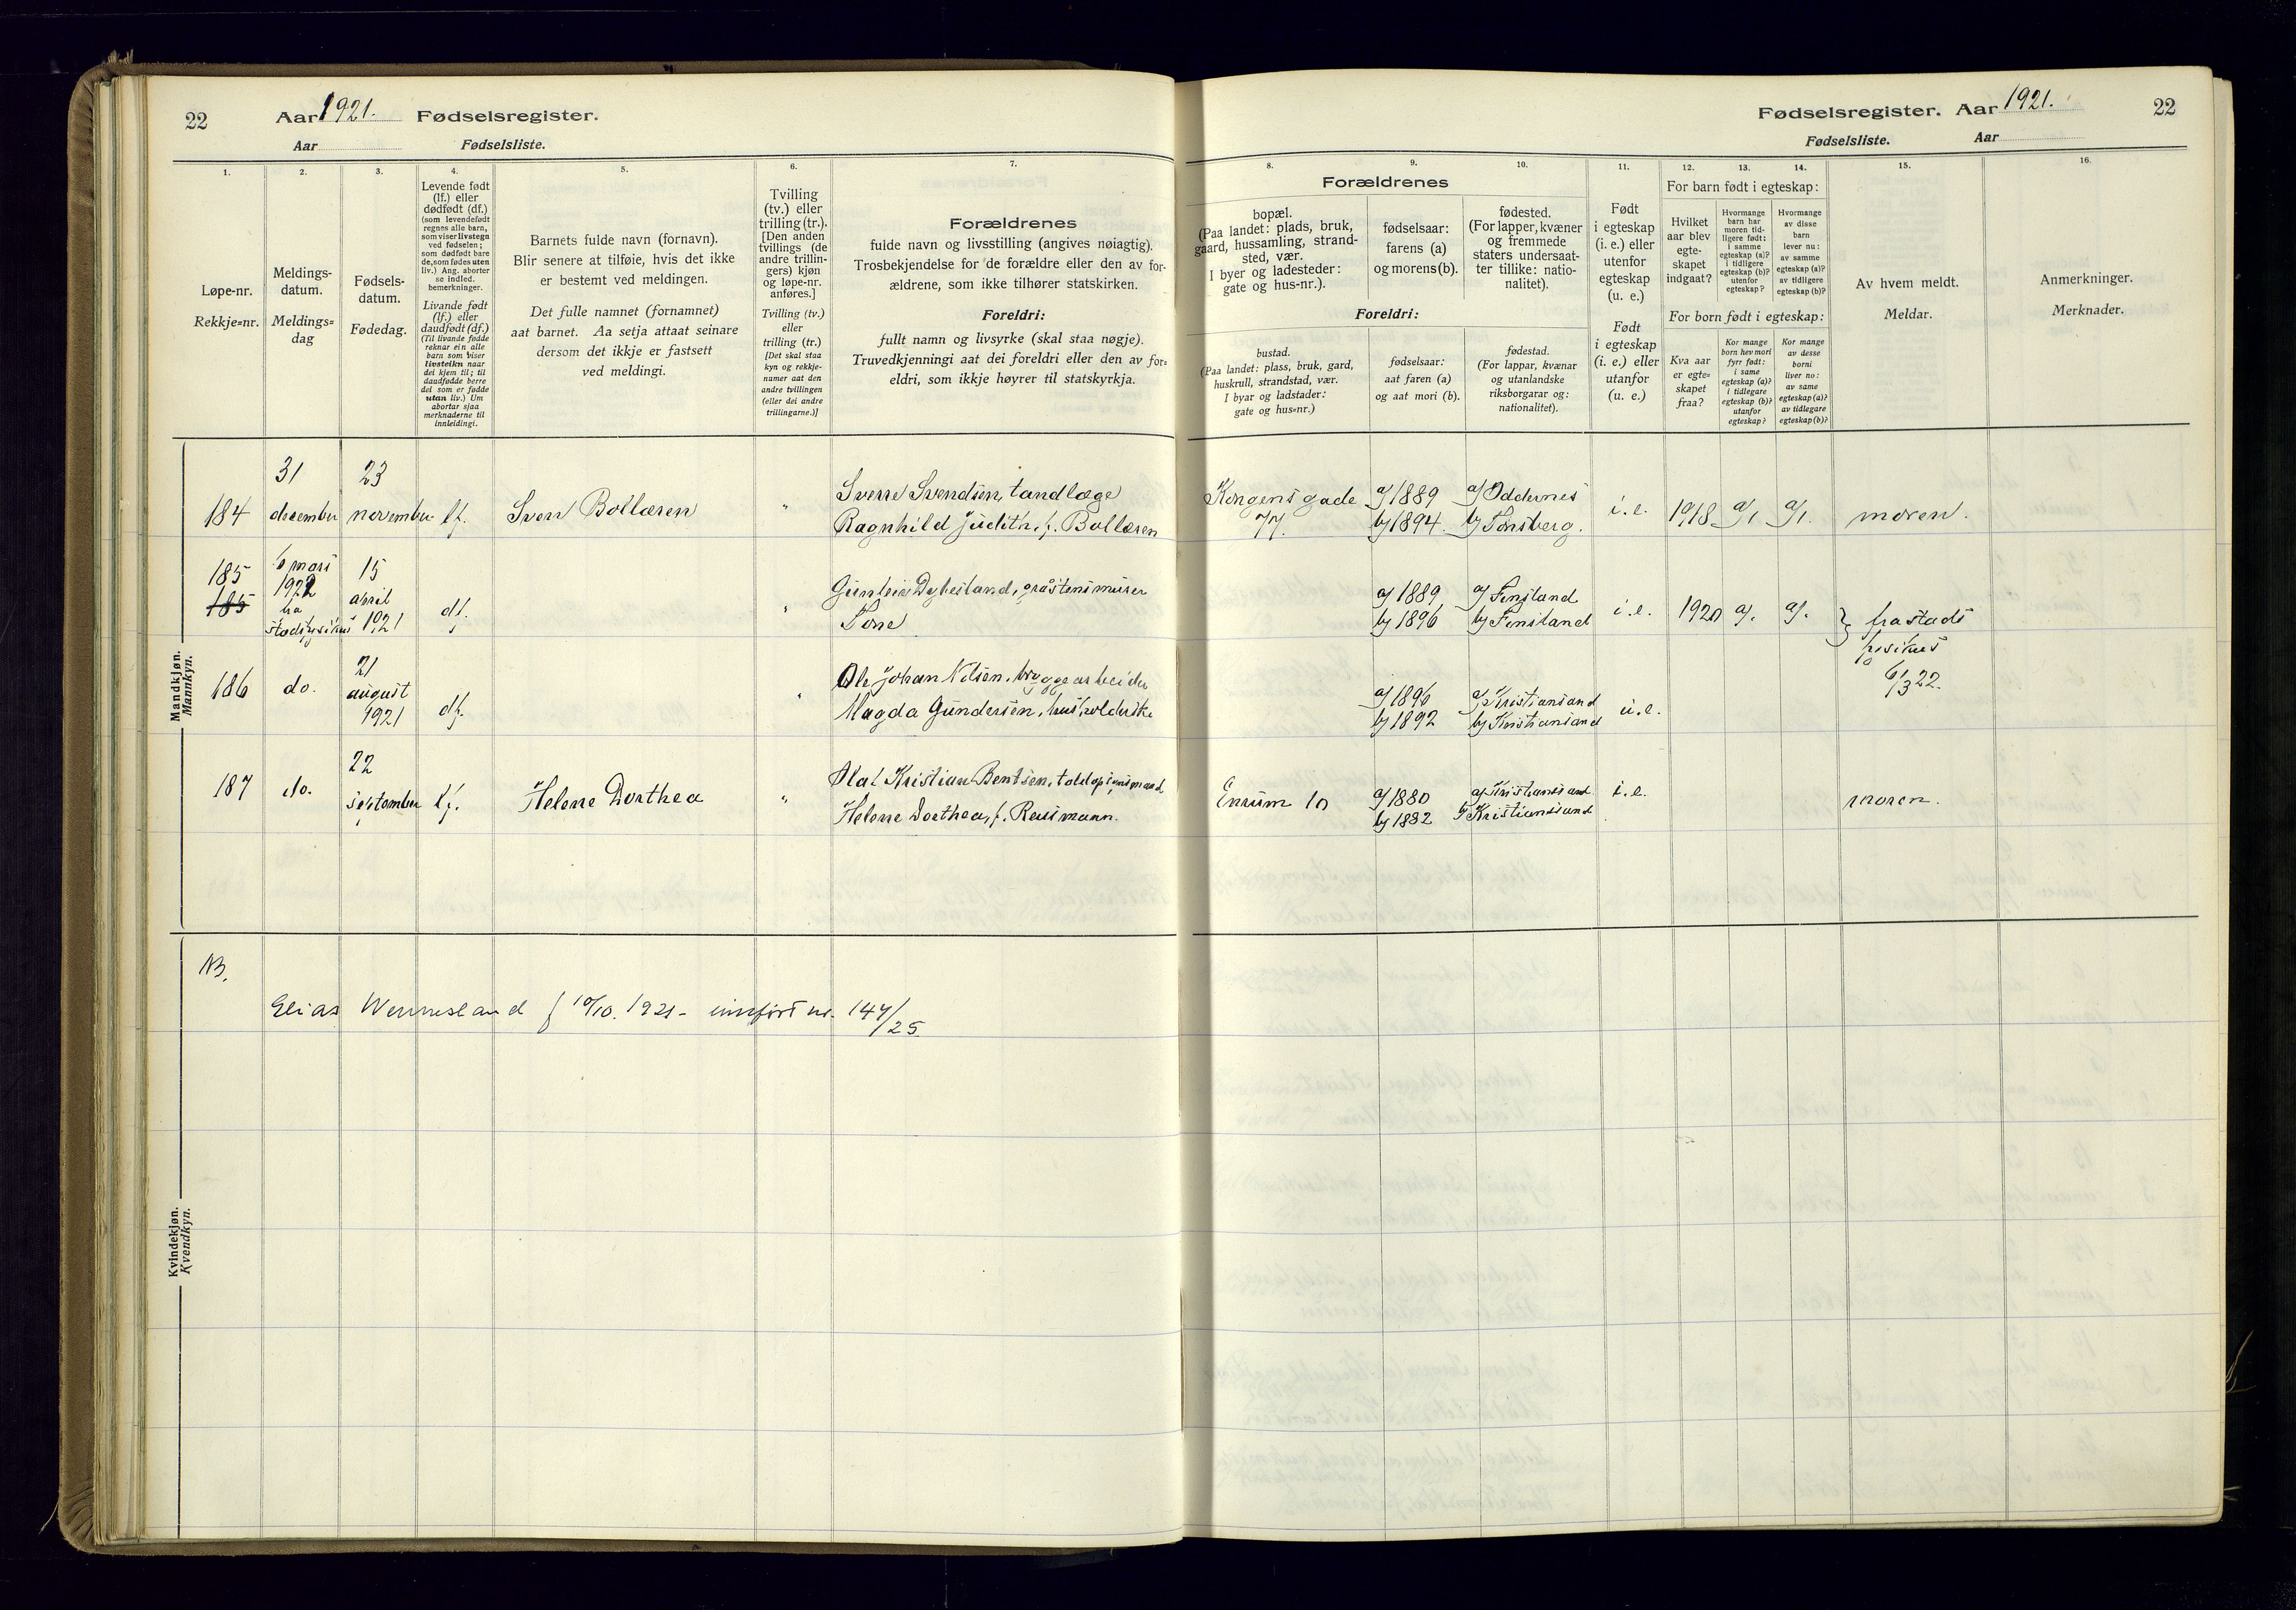 22 Aar 1921. Fødselsregister.
Aar Fødselsliste.
Fødselsregister. Aar 1921. 22
Fødselsliste. Aar
1. 2. 3. 4. 5. 6. 7.
Løpe-nr.
Rekkje=nr.
Meldings-
datum.
Meldings=
dag
Fødsels-
datum.
Fødedag.
Levende født
(lf.) eller
dødfødt (df.)
(som levendefødt
regnes alle barn,
som viser livstegn
ved fødselen;
som dødfødt bare
de, som fødes uten
liv.) Ang. aborter
se indled.
bemerkninger.
Livande født
(lf.) eller
daudfødt (df.)
(Til livande fødde
reknar ein alle
barn som viser
livsteikn naar
dei kjem til; til
daudfødde berre
dei som er fødde
utan liv.) Um
abortar sjaa
merknaderne til
innleidingi.
Barnets fulde navn (fornavn).
Blir senere at tilføie, hvis det ikke
er bestemt ved meldingen.
Det fulle namnet (fornamnet)
aat barnet. Aa setja attaat seinare
dersom det ikkje er fastsett
ved meldingi.
Tvilling
(tv.) eller
trilling (tr.).
[Den anden
tvillings (de
andre trillin-
gers) kjøn
og løpe-nr.
anføres.]
Tvilling (tv.)
eller
trilling (tr.)
[Det skal staa
kyn og rekkje-
numer aat den
andre tvillingen
(eller dei andre
trillingarne.)]
Forældrenes
fulde navn og livsstilling (angives nøiagtig).
Trosbekjendelse for de forældre eller den av for-
ældrene, som ikke tilhører statskirken.
Foreldri:
fullt namn og livsyrke (skal staa nøgje).
Truvedkjenningi aat dei foreldri eller den av for=
eldri, som ikkje høyrer til statskyrkja.
8. 9. 10. 11. 12. 13. 14. 15. 16.
Forældrenes
bopæl.
(Paa landet: plads, bruk,
gaard, hussamling, strand-
sted, vær.
I byer og ladesteder:
gate og hus-nr.).
fødselsaar:
farens (a)
og morens (b).
fødested.
(For lapper, kvæner
og fremmede
staters undersaat-
ter tillike: natio-
nalitet).
Foreldri:
bustad.
(Paa landet: plass, bruk, gard,
huskrull, strandstad, vær.
I byar og ladstader:
gate og hus=nr.)
fødselsaar:
aat faren (a)
og aat mori (b).
fødestad.
(For lappar, kvænar
og utanlandske
riksborgarar og:
nationalitet).
Født
i egteskap
(i. e.) eller
utenfor
egteskap
(u. e.)
Født
i egteskap
(i. e.) eller
utanfor
(u. e.)
For barn født i egteskap:
Hvilket
aar blev
egte-
skapet
indgaat?
Hvormange
barn har
moren tid-
ligere født:
i samme
egteskap (a)?
i tidligere
egteskap (b)?
utenfor
egteskap?
Hvormange
av disse
barn
lever nu:
av samme
egteskap (a)?
av tidligere
egteskap (b)?
For born født i egteskap:
Kva aar
er egte=
skapet
fraa?
Kor mange
born hev mori
fyrr født:
i same
egteskap (a)?
i tidlegare
egteskap (b)?
utanfor
egteskap?
Kor mange
av desse
borni
liver no:
av same
egteskap (a)?
av tidlegare
egteskap (b)?
Av hvem meldt.
Meldar.
Anmerkninger.
Merknader.
Mandkjøn.
Mannkyn.
184 31 december 23 november lf. Sven Bollæren " Sverre Svendsen, tandlæge
Ragnhild Judith, f. Bollæren
Kongensgade 77. a/ 1889 b/ 1894. a/ Oddernes b/ Tønsberg. i. e. 1918 a/1 a/1. moren.
185 185 6 mars 1922 fra stadsfysikus 15 april 1921 df. " Gunleiv Dybesland, gråstensmurer
Tone
a/ 1889 b/ 1896 a/ Finsland b/ Finsland i. e. 1920 a/. a/. } fra stads
fysikus
6/3 22.
186 do. 21 august 1921 df. " Ole Johan Nilsen, bryggearbeider
Magda Gundersen, husholderske
a/ 1896 b/ 1892 a/ Kristiansand b/ Kristiansand u. e.
187 do. 22 september lf. Helene Dorthea " Olaf Kristian Bentsen, toldopsynsmand
Helene Dorthea, f. Reusmann.
Enrum 10 a/ 1880 b/ 1882 a/ Kristianssand b/ Kristianssand i. e. moren.
Kvindekjøn.
Kvendkyn.
NB.
Elias Wennesland f 10/10. 1921 - innført nr. 147/25.